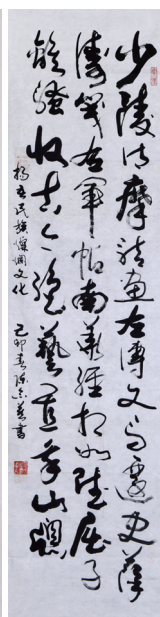 少陵詩摩詰畫左傳文馬遷史薛
濤箋右軍帖南華經相如賦屈子
離騷收古今絕藝置我山窗
揚吾民族燦爛文化 己卯春陳書